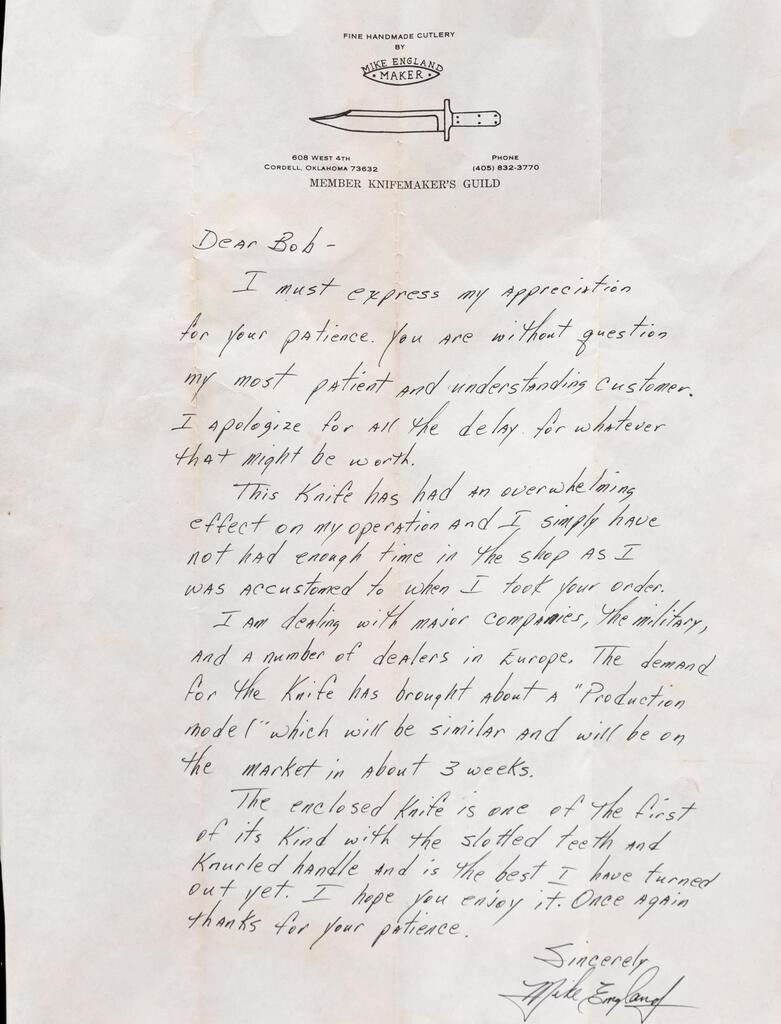 FINE HANDMADE CUTLERY
BY
MIKE ENGLAND
MAKER
608 WEST 4TH
CORDELL, OKLAHOMA 73632
PHONE
(405) 832-3770
MEMBER KNIFEMAKER'S GUILD
Dear Bob -
I must express my appreciation
for your patience. You are without question
my most patient and understanding customer.
I apologize for all the delay for whatever
that might be worth.
This Knife has had an overwhelming
effect on my operation and I simply have
not had enough time in the shop as I
was accustomed to when I took your order.
I am dealing with major companies, the military,
and a number of dealers in Europe. The demand
for the Knife has brought about a "Production
model" which will be similar and will be on
the market in about 3 weeks.
The enclosed Knife is one of the first
of its kind with the slotted teeth and
Knurled handle and is the best I have turned
out yet. I hope you enjoy it. Once again
thanks for your patience.
Sincerely
Mike England